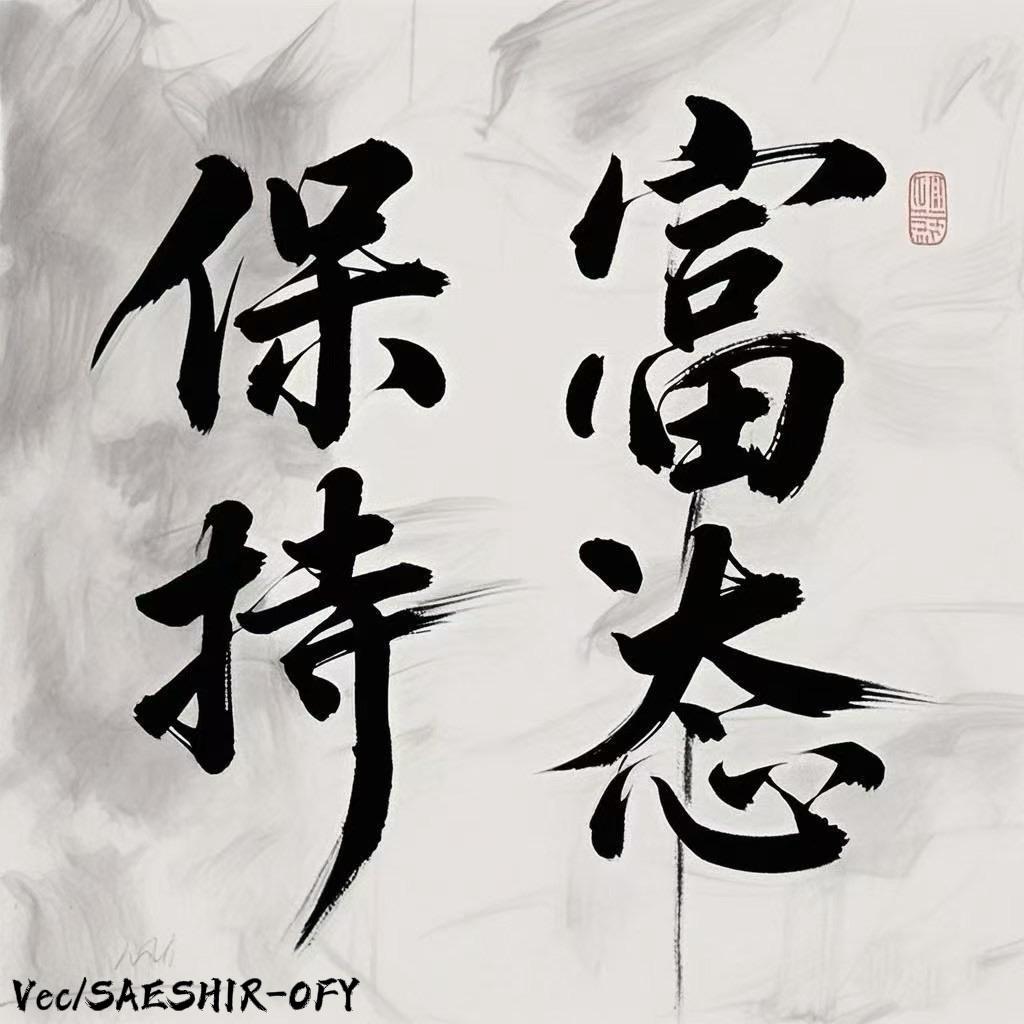 富态
保持
Vec/SAESHIR-OFY